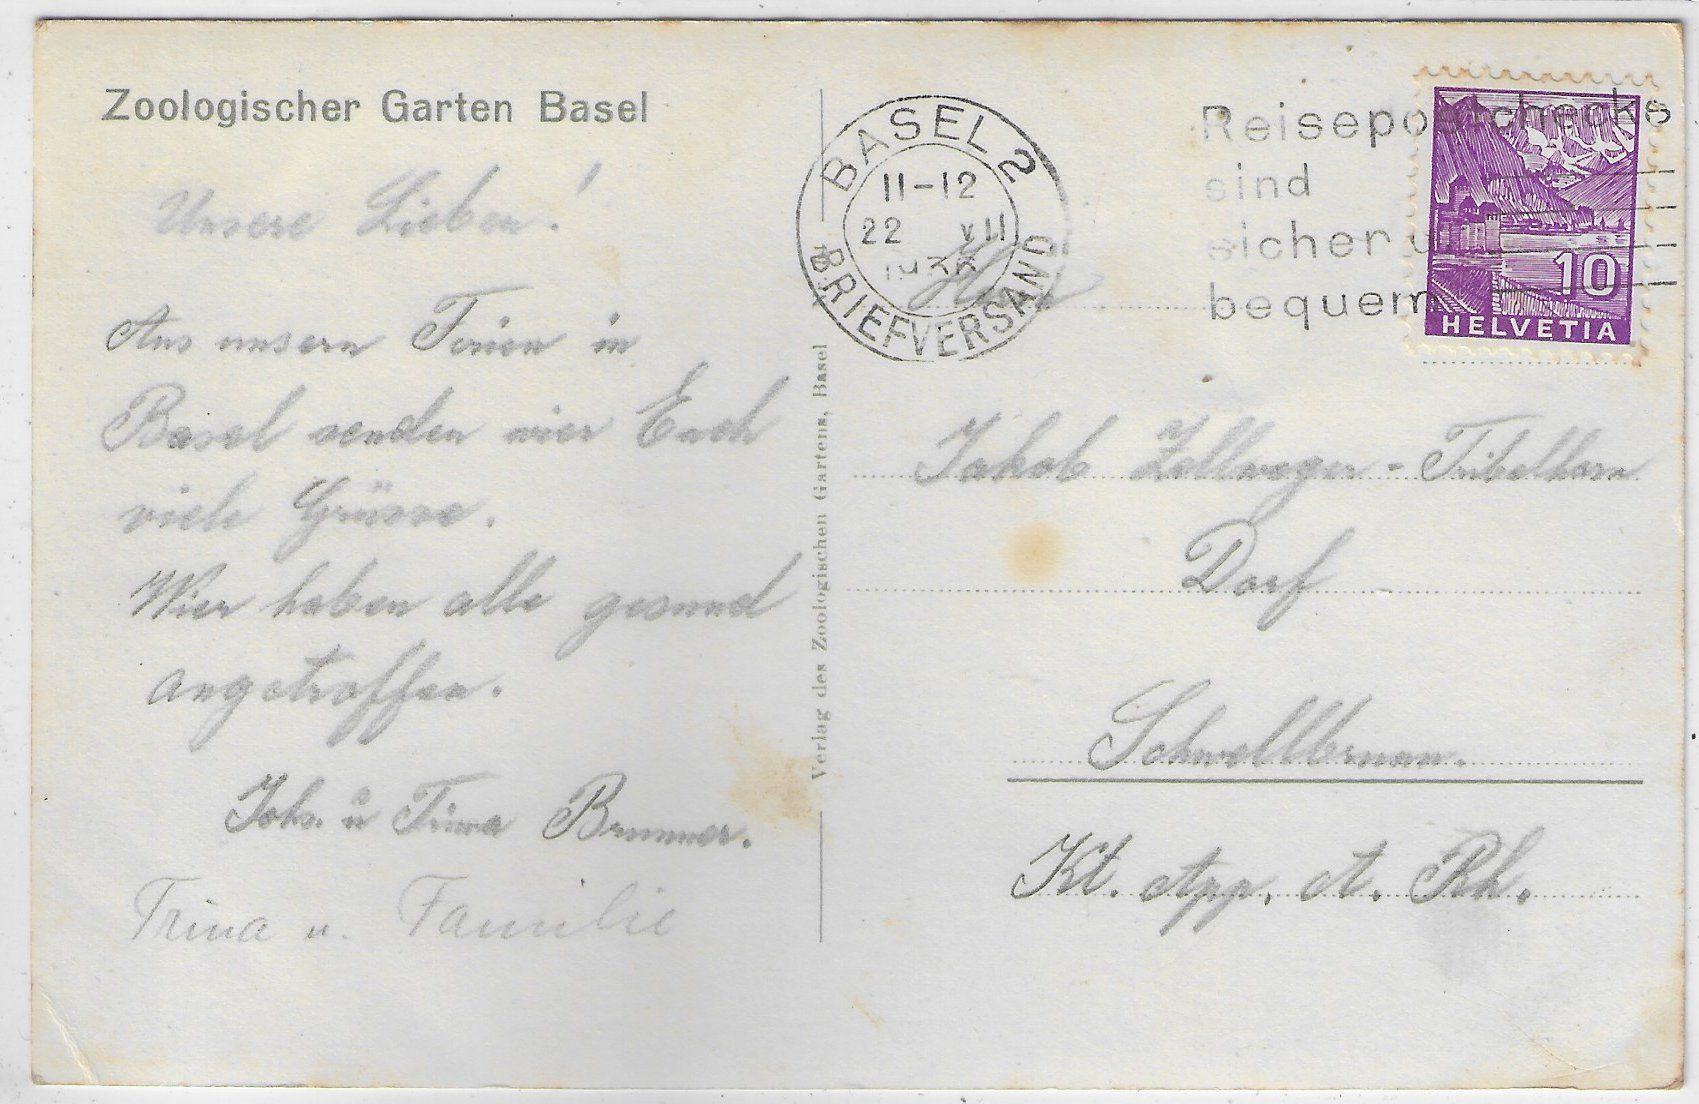 Zoologischer Garten Basel
Unsere Lieben!
Aus unsern Ferien in
Basel senden wier Euch
viele Grüsse.
Wier haben alle gesund
angetroffen.
Johs. u Trina Brunner.
Trina u. Familie
Verlag des Zoologischen Gartens, Basel
BASEL 2
11-12
22 VII
BRIEFVERSAND
Reisepostchecks
sind
sicher u
bequem
10
HELVETIA
Jakob Zellweger-Tribelhorn
Dorf
Schwellbrunn.
Kt. App. A. Rh.